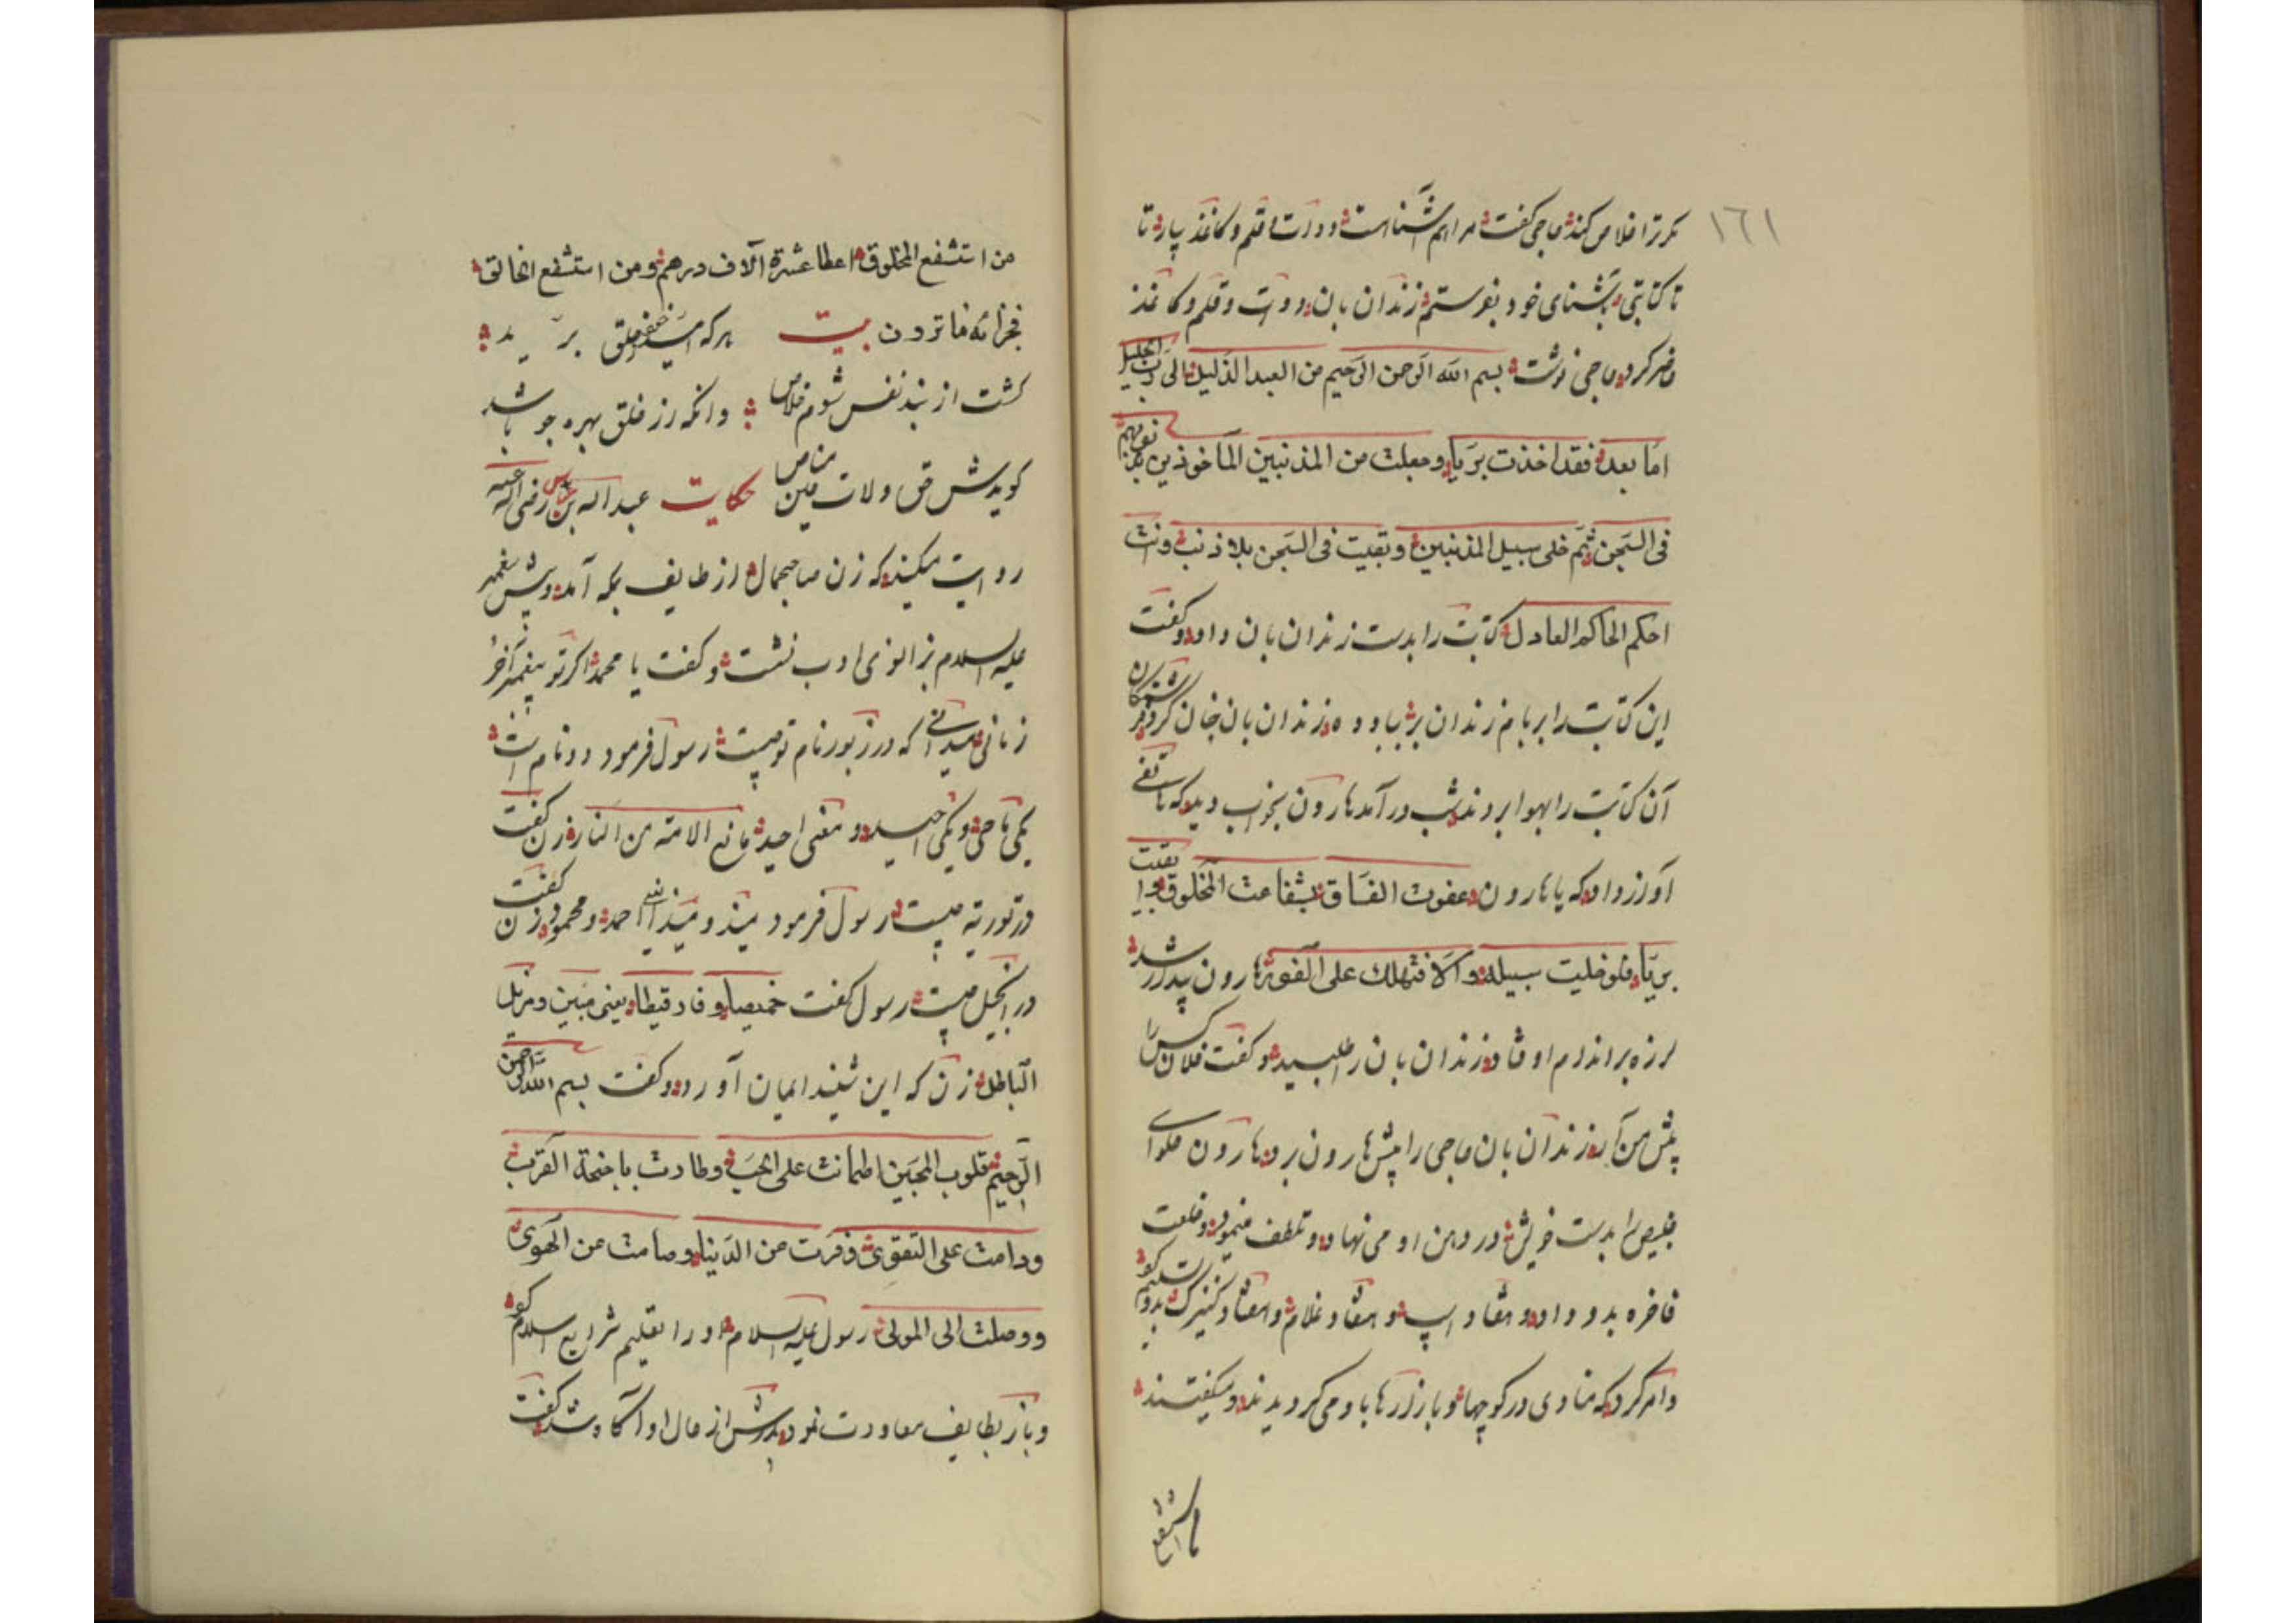 ١٦١
که ترا خلاص کند حاجی گفت مرا هم آشنا است دوات و قلم و کاغذ بیار تا
تا کتابتی بآشنای خود بفرستم زندان بان دوات و قلم و کاغذ
حاضر کرد حاجی نوشت بسم الله الرحمن الرحیم من العبد الذلیل الی رب الجلیل
اما بعد فقد اخذت بریا و جعلت من المذنبین المأخوذین بذنوبهم
فی السجن ثم خلی سبیل المذنبین و بقیت فی السجن بلا ذنب و انت
احکم الحاکم العادل کتابت را بدست زندان بان داد و گفت
این کتابت را بر بام زندان بر بباد ده زندان بان چنان کرد فرشتکان
آن کتابت را بهوا بردند شب درآمد هارون بخواب دید که هاتفی
آواز داد که یا هارون عفوت الفساق بشفاعت المخلوق و بقیت
بریا فلو خلیت سبیله و الا فتهلک علی الفور هارون بیدار شد
لرزه بر اندام او فتاد زندان بان را طلبید و گفت فلان کس را
پیش من آر زندان بان حاجی را پیش هارون برد هارون حلوای
خبیص را بدست خویش در دهن او می نهاد و تلطف مینمود و خلعت
فاخره بدو داد و هفتاد اسپ و هفتاد غلام و هفتاد کنیزک بدو تسلیم کرد
و امر کرد که منادی در کوچها و بازارها با او می کردیدند و میکفتند
من استشفع
من استشفع المخلوق اعطا عشرة آلاف درهم و من استشفع الخالق
فجزائه ما ترون بیت هر که امید خلق برید
گشت از بند نفس شوم خلاص وانکه از خلق بهره جو باشد
کویدش حق ولات حین مناص حکایت عبد اله بن عباس رضی اله عنه
روایت میکند که زن صاحبجمال از طایف بمکه آمد و پیش پیغمبر
علیه السلام بزانوی ادب نشست و گفت یا محمد اگر تو پیغمبر آخر
زمانی میدانی که در زبور نام تو چیست رسول فرمود دو نام است
یکی ماحی و یکی احید و معنی احید مانع الامته من النار زن گفت
در توریة چیست رسول فرمود میذ و میذ ای احمد و محمود زن گفت
در انجیل چیست رسول گفت خمیصا و فارقیطا یعنی مبین و مزیل
الباطل زن که این شنید ایمان آورد و گفت بسم الله الرحمن
الرحیم قلوب المحبین اطمانت علی الحب و طارت باجنحة القرب
و دامت علی التقوی و فرت من الدنیا و صامت عن الهوی
و وصلت الی المولی رسول علیه السلام او را تعلیم شرایع اسلام کرد
و باز بطایف معاودت نمود پدرش از حال او آگاه شد گفت